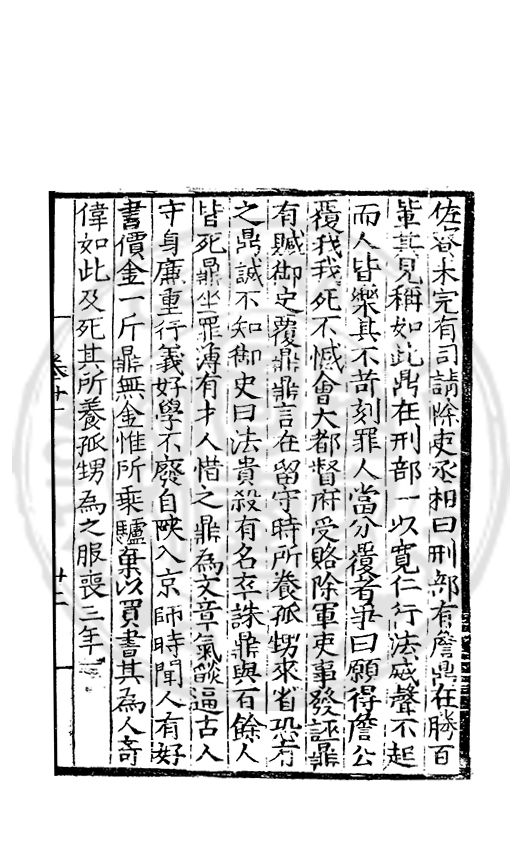 佐貧未完有司請除吏丞相曰刑部有詹鼎在勝百
輩其見稱如此鼎在刑部一以寬仁行法威聲不起
而人皆樂其不苛刻罪人當分覆者爭曰願得詹公
覆我我死不憾會大都督府受賂除軍吏事發誣鼎
有贓御史覆鼎鼎言在留守時所養孤甥來省恐有
之鼎誠不知御史曰法貴殺有名卒誅鼎與百餘人
皆死鼎坐罪溥有才人惜之鼎為文章氣燄逼古人
守身廉重行義好學不廢自陝入京師時聞人有好
書價金一斤鼎無金惟所乘驢棄以買書其為人奇
偉如此及死其所養孤甥為之服喪三年
卷廿一
廿二